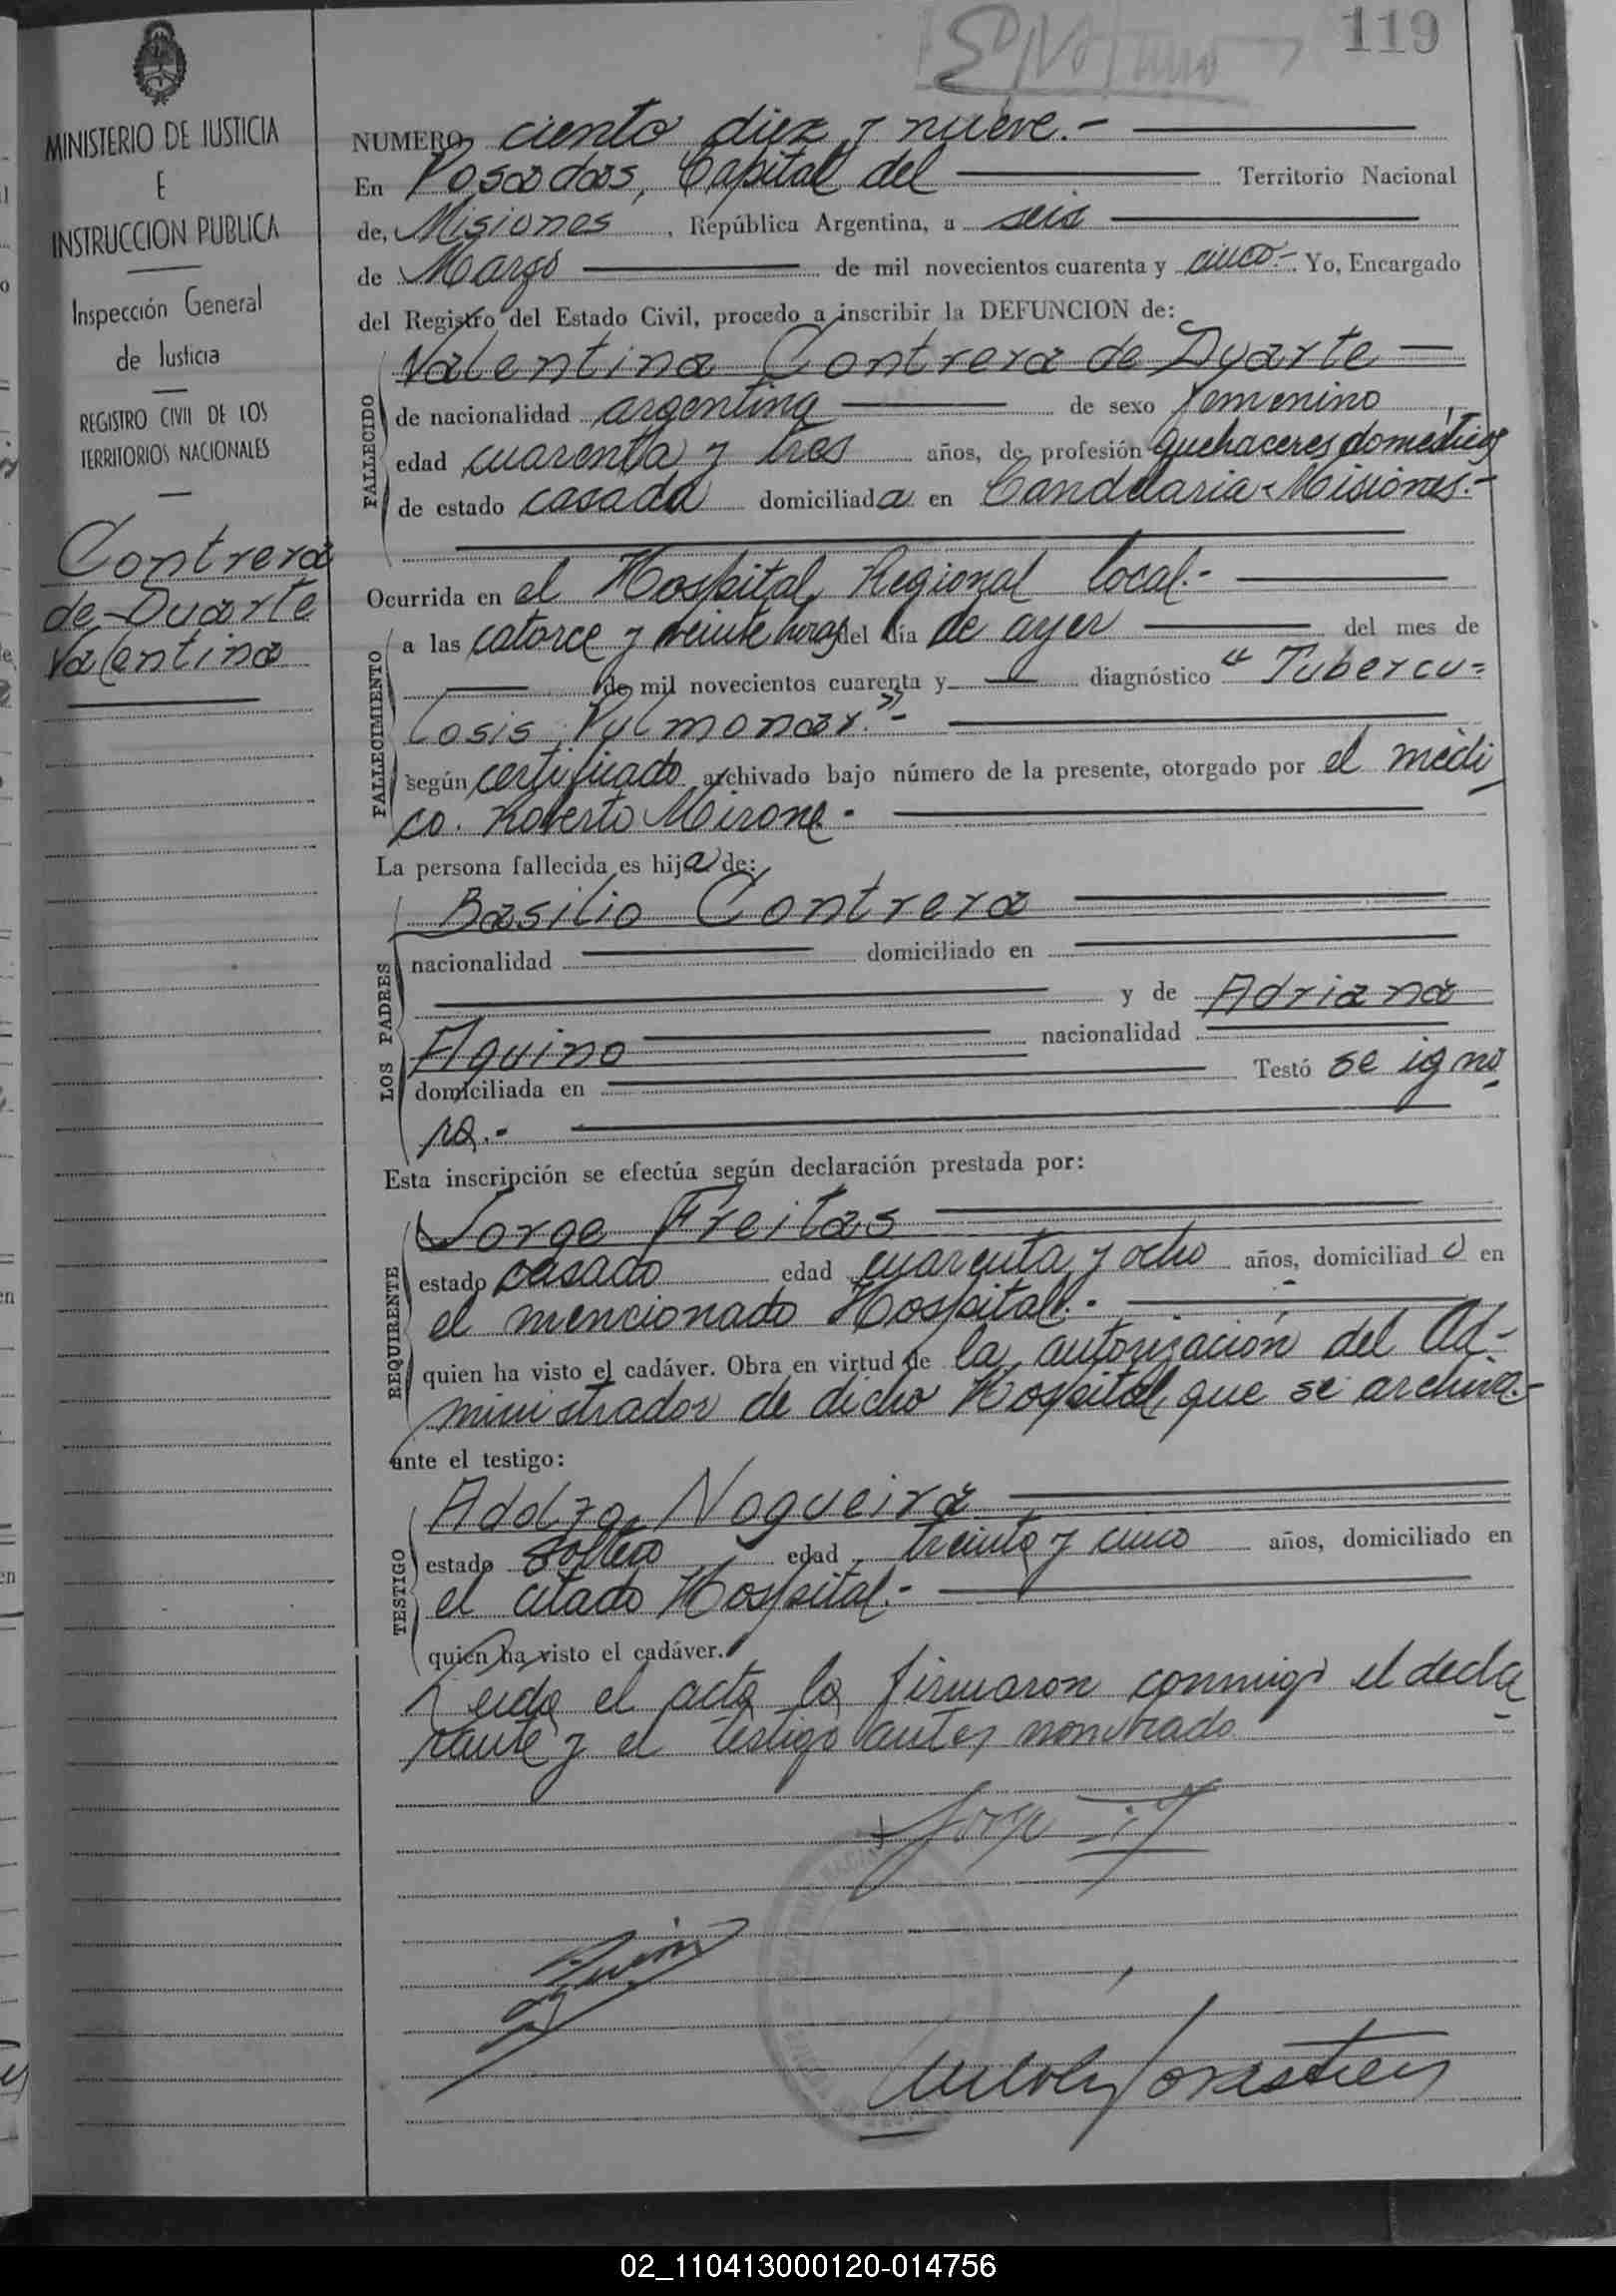 119
MINISTERIO DE JUSTICIA
E
INSTRUCCION PUBLICA
Inspección General
de Justicia
REGISTRO CIVIL DE LOS
TERRITORIOS NACIONALES
Contrera
de Duarte
Valentina
NUMERO ciento diez y nueve.-
En Posadas, Capital del Territorio Nacional
de, Misiones, República Argentina, a seis
de Marzo de mil novecientos cuarenta y cinco.- Yo, Encargado
del Registro del Estado Civil, procedo a inscribir la DEFUNCION de:
FALLECIDO
Valentina Contrera de Duarte
de nacionalidad argentina de sexo femenino
edad cuarenta y tres años, de profesión quehaceres domésticos
de estado casada domiciliada en Candelaria-Misiones.-
Ocurrida en el Hospital Regional local.-
FALLECIMIENTO
a las catorce y veinte horas del día de ayer del mes de
de mil novecientos cuarenta y diagnóstico "Tubercu=
losis Pulmonar."-
según certificado archivado bajo número de la presente, otorgado por el médi
co. Roberto Mirone.
La persona fallecida es hija de:
LOS PADRES
Basilio Contrera
nacionalidad domiciliado en
y de Adriana
Aquino nacionalidad
domiciliada en Testó se igno
ra.-
Esta inscripción se efectúa según declaración prestada por:
REQUIRENTE
Jorge Freitas
estado casado edad cuarenta y ocho años, domiciliado en
el mencionado Hospital.-
quien ha visto el cadáver. Obra en virtud de la autorización del Ad-
ministrador de dicho Hospital, que se archiva.-
ante el testigo:
TESTIGO
Adolfo Nogueira
estado soltero edad treinta y cinco años, domiciliado en
el citado Hospital.-
quien ha visto el cadáver.
Leída el acta la firmaron conmigo el decla
rante y el testigo antes nombrado
Jorge
02_110413000120-014756